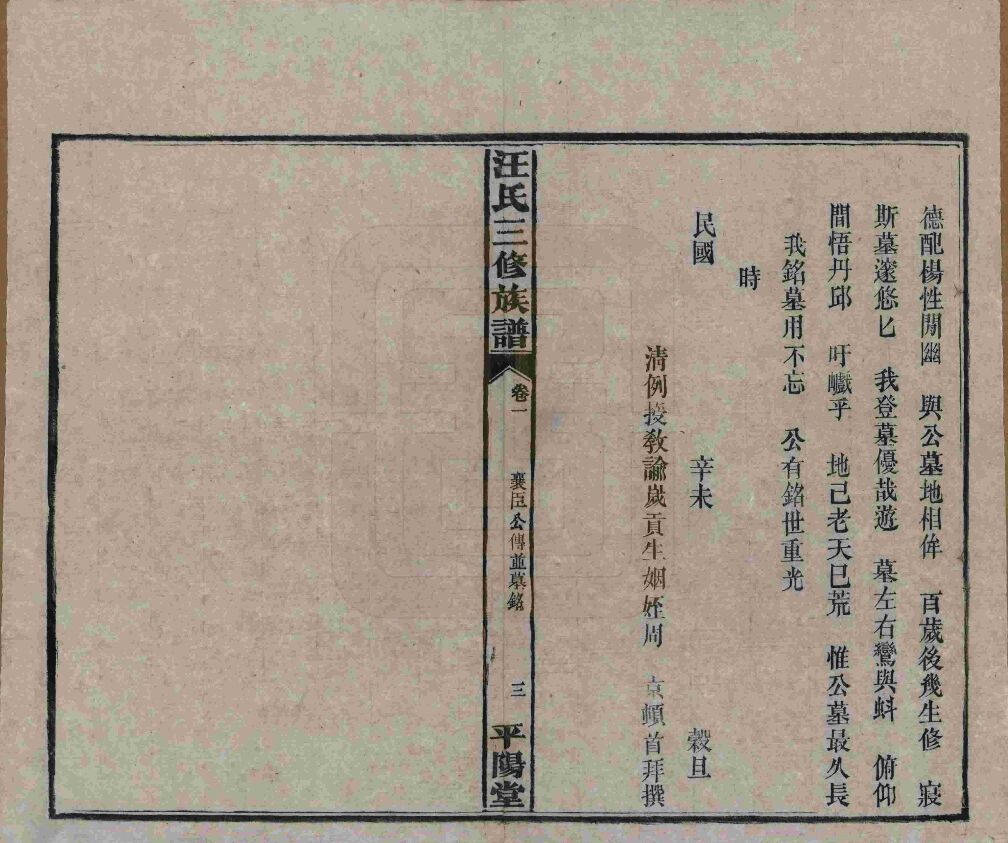 德配楊性閒幽　與公墓地相侔　百歲後幾生修　寢
斯墓邃悠匕　我登墓優哉遊　墓左右鸞與蚪　俯仰
間悟丹邱　吁巇乎　地已老天已荒　惟公墓最久長
我銘墓用不忘　公有銘世重光
時
民國　辛未　穀旦
清例授教諭歲貢生姻姪周　京頓首拜撰
汪氏三修族譜
卷一
襄臣公傳並墓銘
三
平陽堂